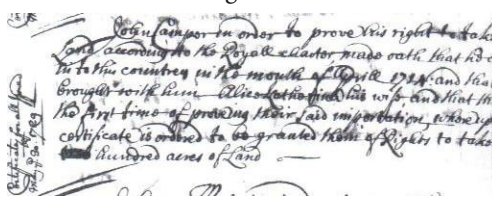 John Camper in order to prove his right to take
Land according to the Royall charter made oath that he c
in to this countrey in the month of Aprill 1724: and tha
brought with him Alice Catherine his wife and that th
the first time of proving their said importation, whereu
certificate is ordered to be granted them of Rights to take
hundred acres of Land
Certificate for all